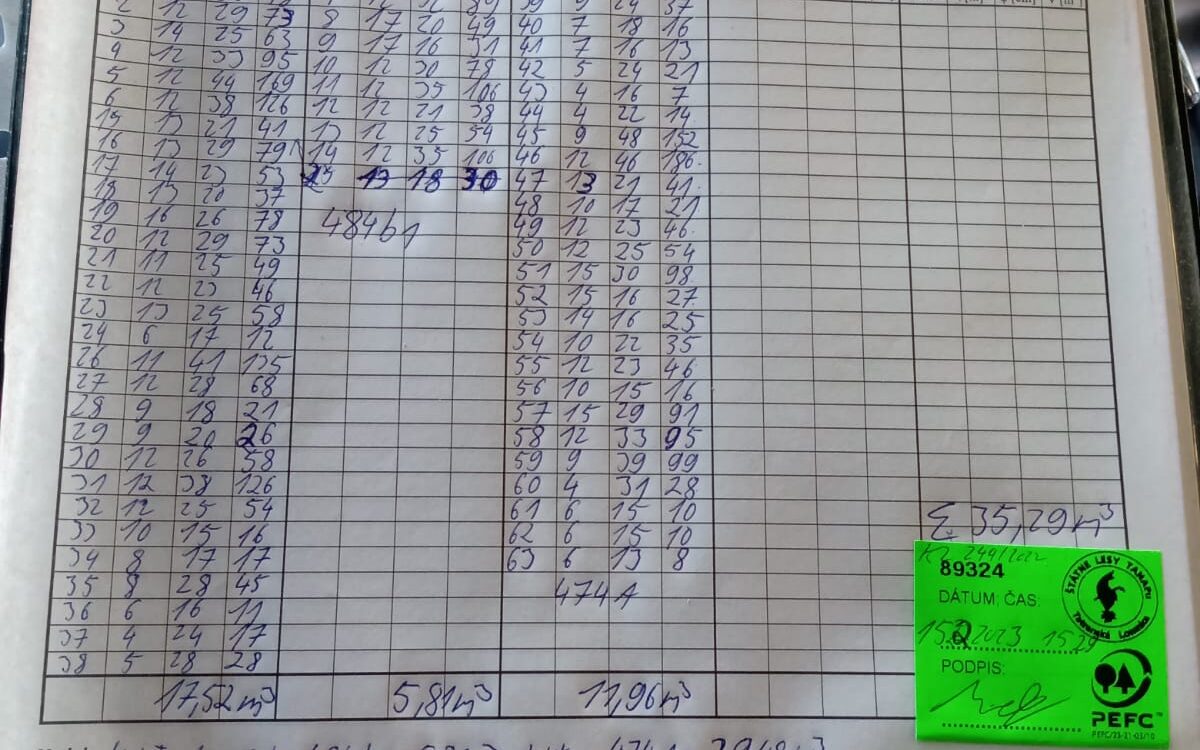 2 12 29 73 12 89 39 9 24 37
3 14 25 63 8 17 20 49 40 7 18 16
4 12 33 95 9 17 16 31 41 7 16 13
5 12 44 169 10 12 30 78 42 5 24 21
6 12 38 126 11 12 35 106 43 4 16 7
15 13 21 41 12 12 21 38 44 4 22 14
16 13 29 79 13 12 25 54 45 9 48 152
17 14 23 53 14 12 35 106 46 12 46 186
18 13 20 37 25 13 18 30 47 13 21 41
19 16 26 78 484b1 48 10 17 21
20 12 29 73 49 12 23 46
21 11 25 49 50 12 25 54
22 12 23 46 51 15 30 98
23 13 25 58 52 15 16 27
24 6 17 12 53 14 16 25
26 11 41 135 54 10 22 35
27 12 28 68 55 12 23 46
28 9 18 21 56 10 15 16
29 9 20 26 57 15 29 91
30 12 26 58 58 12 33 95
31 12 38 126 59 9 39 99
32 12 25 54 60 4 31 28
33 10 15 16 61 6 15 10
34 8 17 17 62 6 15 10
35 8 28 45 63 6 13 8
36 6 16 11 474A
37 4 24 17
38 5 28 28
17,52 m³ 5,81 m³ 11,96 m³
Σ 35,29 m³
89324
DÁTUM, ČAS:
2023 15
PODPIS:
ŠTÁTNE LESY TANAPU
Tatranská Lomnica
PEFC™
PEFC/23-21-03/10